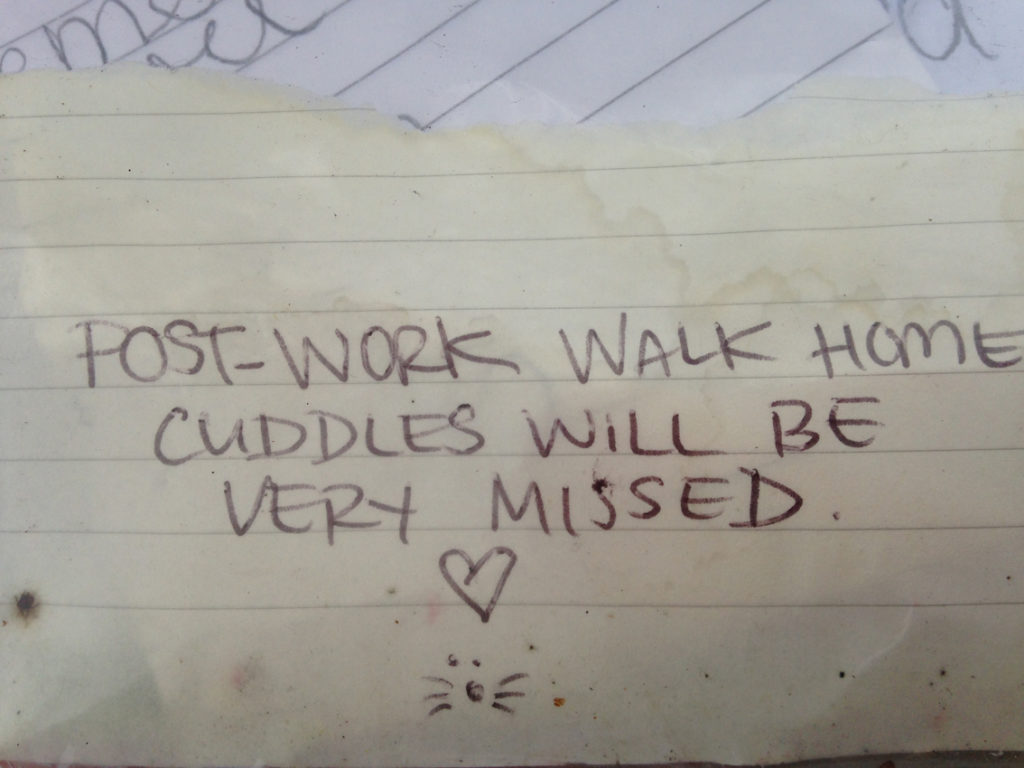 POST-WORK WALK HOME
CUDDLES WILL BE
VERY MISSED.